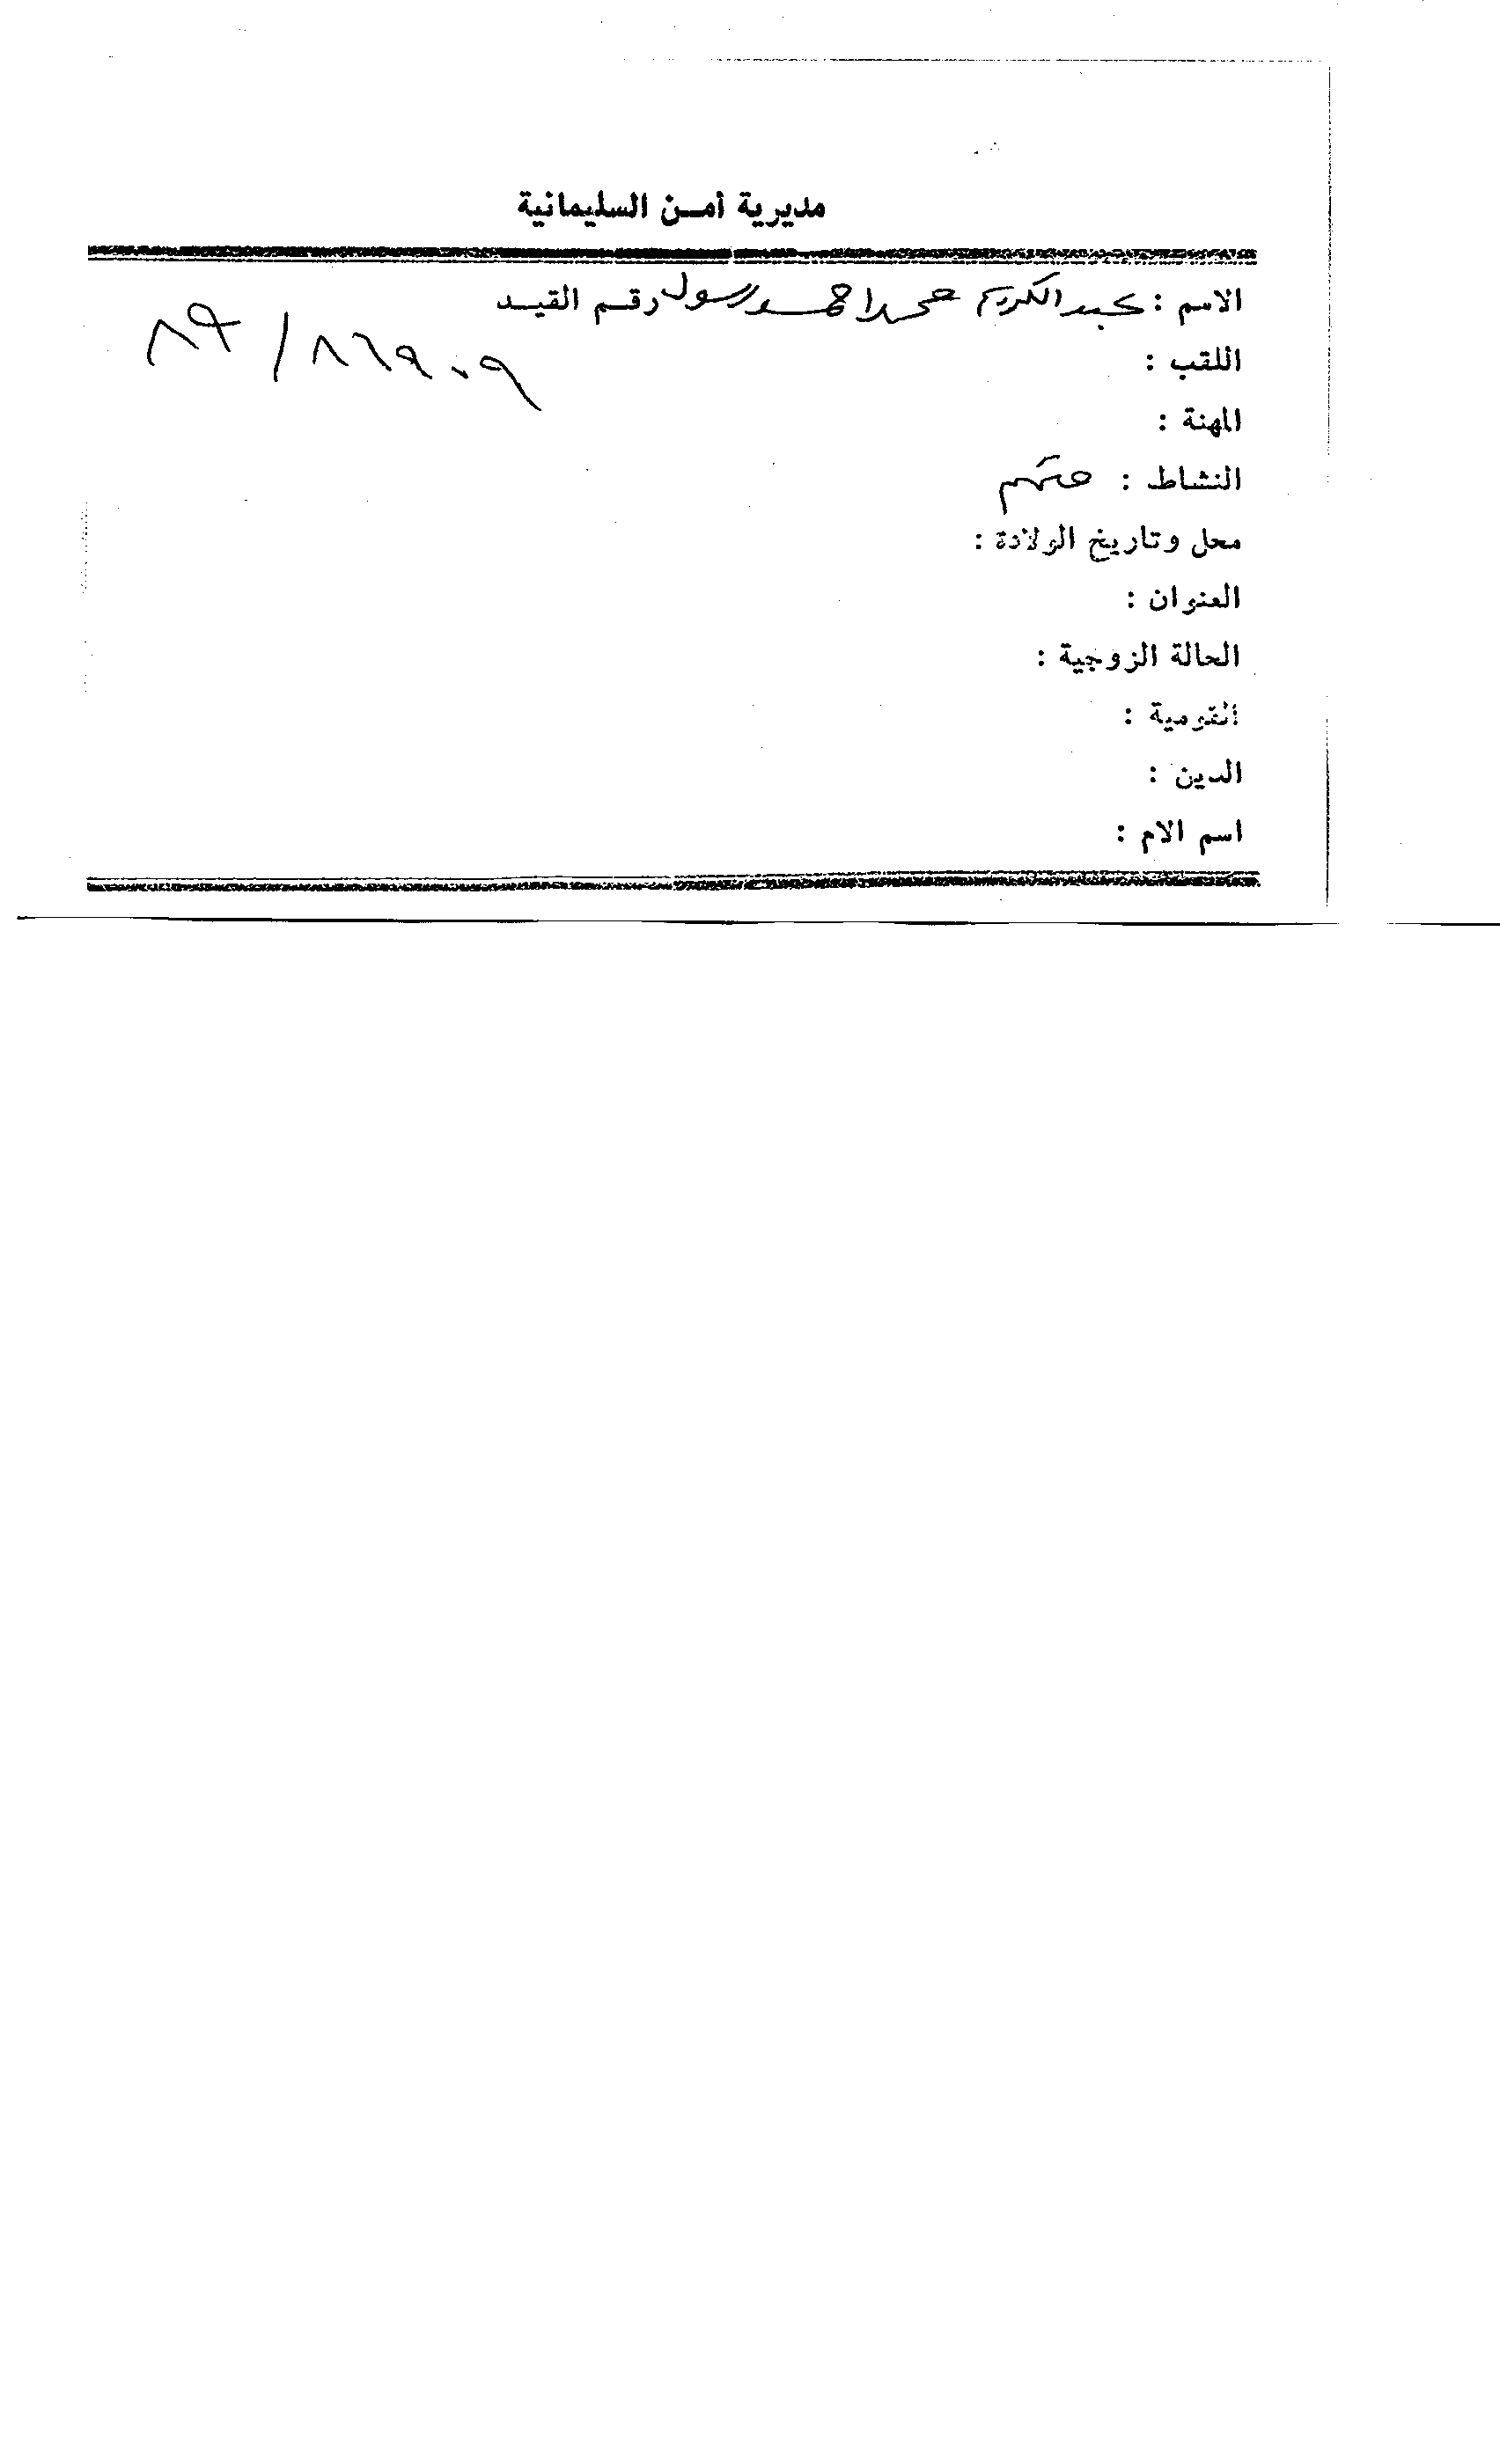 مديرية أمـن السليمانية
الاسم : عبدالكريم محمد احمد رسول رقم القيد
٨٩ / ٨٦٩٠٩
اللقب :
المهنة :
النشاط :
محل وتاريخ الولادة :
العنوان :
الحالة الزوجية :
القومية :
الدين :
اسم الام :